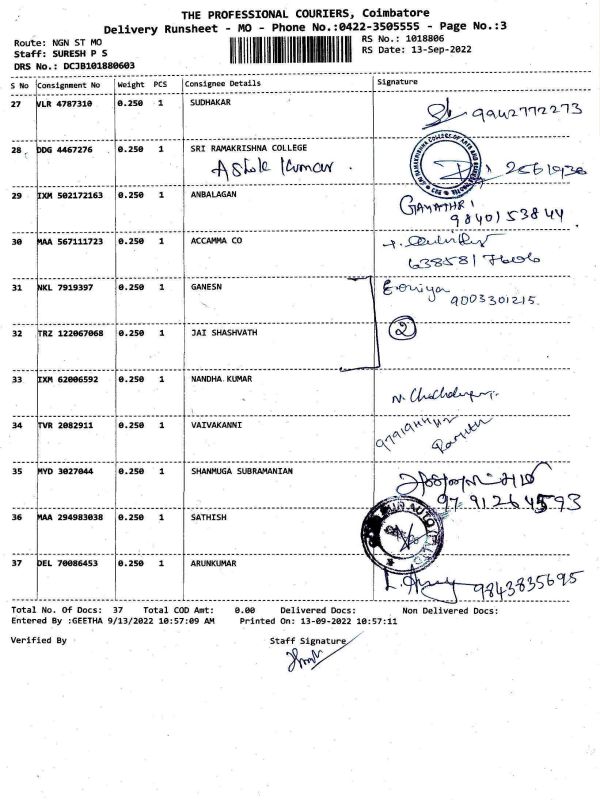 THE PROFESSIONAL COURIERS, Coimbatore
Delivery Runsheet - MO - Phone No.:0422-3505555 - Page No.:3
Route: NGN ST MO
RS No.: 1018806
Staff: SURESH P S
RS Date: 13-Sep-2022
DRS No.: DCJB101880603
S No Consignment No Weight PCS Consignee Details Signature
27 VLR 4787310 0.250 1 SUDHAKAR 9942772273
28 DDG 4467276 0.250 1 SRI RAMAKRISHNA COLLEGE
Ashok Kumar.
29 IXM 502172163 0.250 1 ANBALAGAN GAYATHRI
9840153844
30 MAA 567111723 0.250 1 ACCAMMA CO
31 NKL 7919397 0.250 1 GANESN
9003301215.
32 TRZ 122067068 0.250 1 JAI SHASHVATH 2
33 IXM 62006592 0.250 1 NANDHA KUMAR
34 TVR 2082911 0.250 1 VAIVAKANNI
35 MYD 3027044 0.250 1 SHANMUGA SUBRAMANIAN
9791264593
36 MAA 294983038 0.250 1 SATHISH
37 DEL 70086453 0.250 1 ARUNKUMAR 9843835695
Total No. Of Docs: 37 Total COD Amt: 0.00 Delivered Docs: Non Delivered Docs:
Entered By :GEETHA 9/13/2022 10:57:09 AM Printed On: 13-09-2022 10:57:11
Verified By Staff Signature